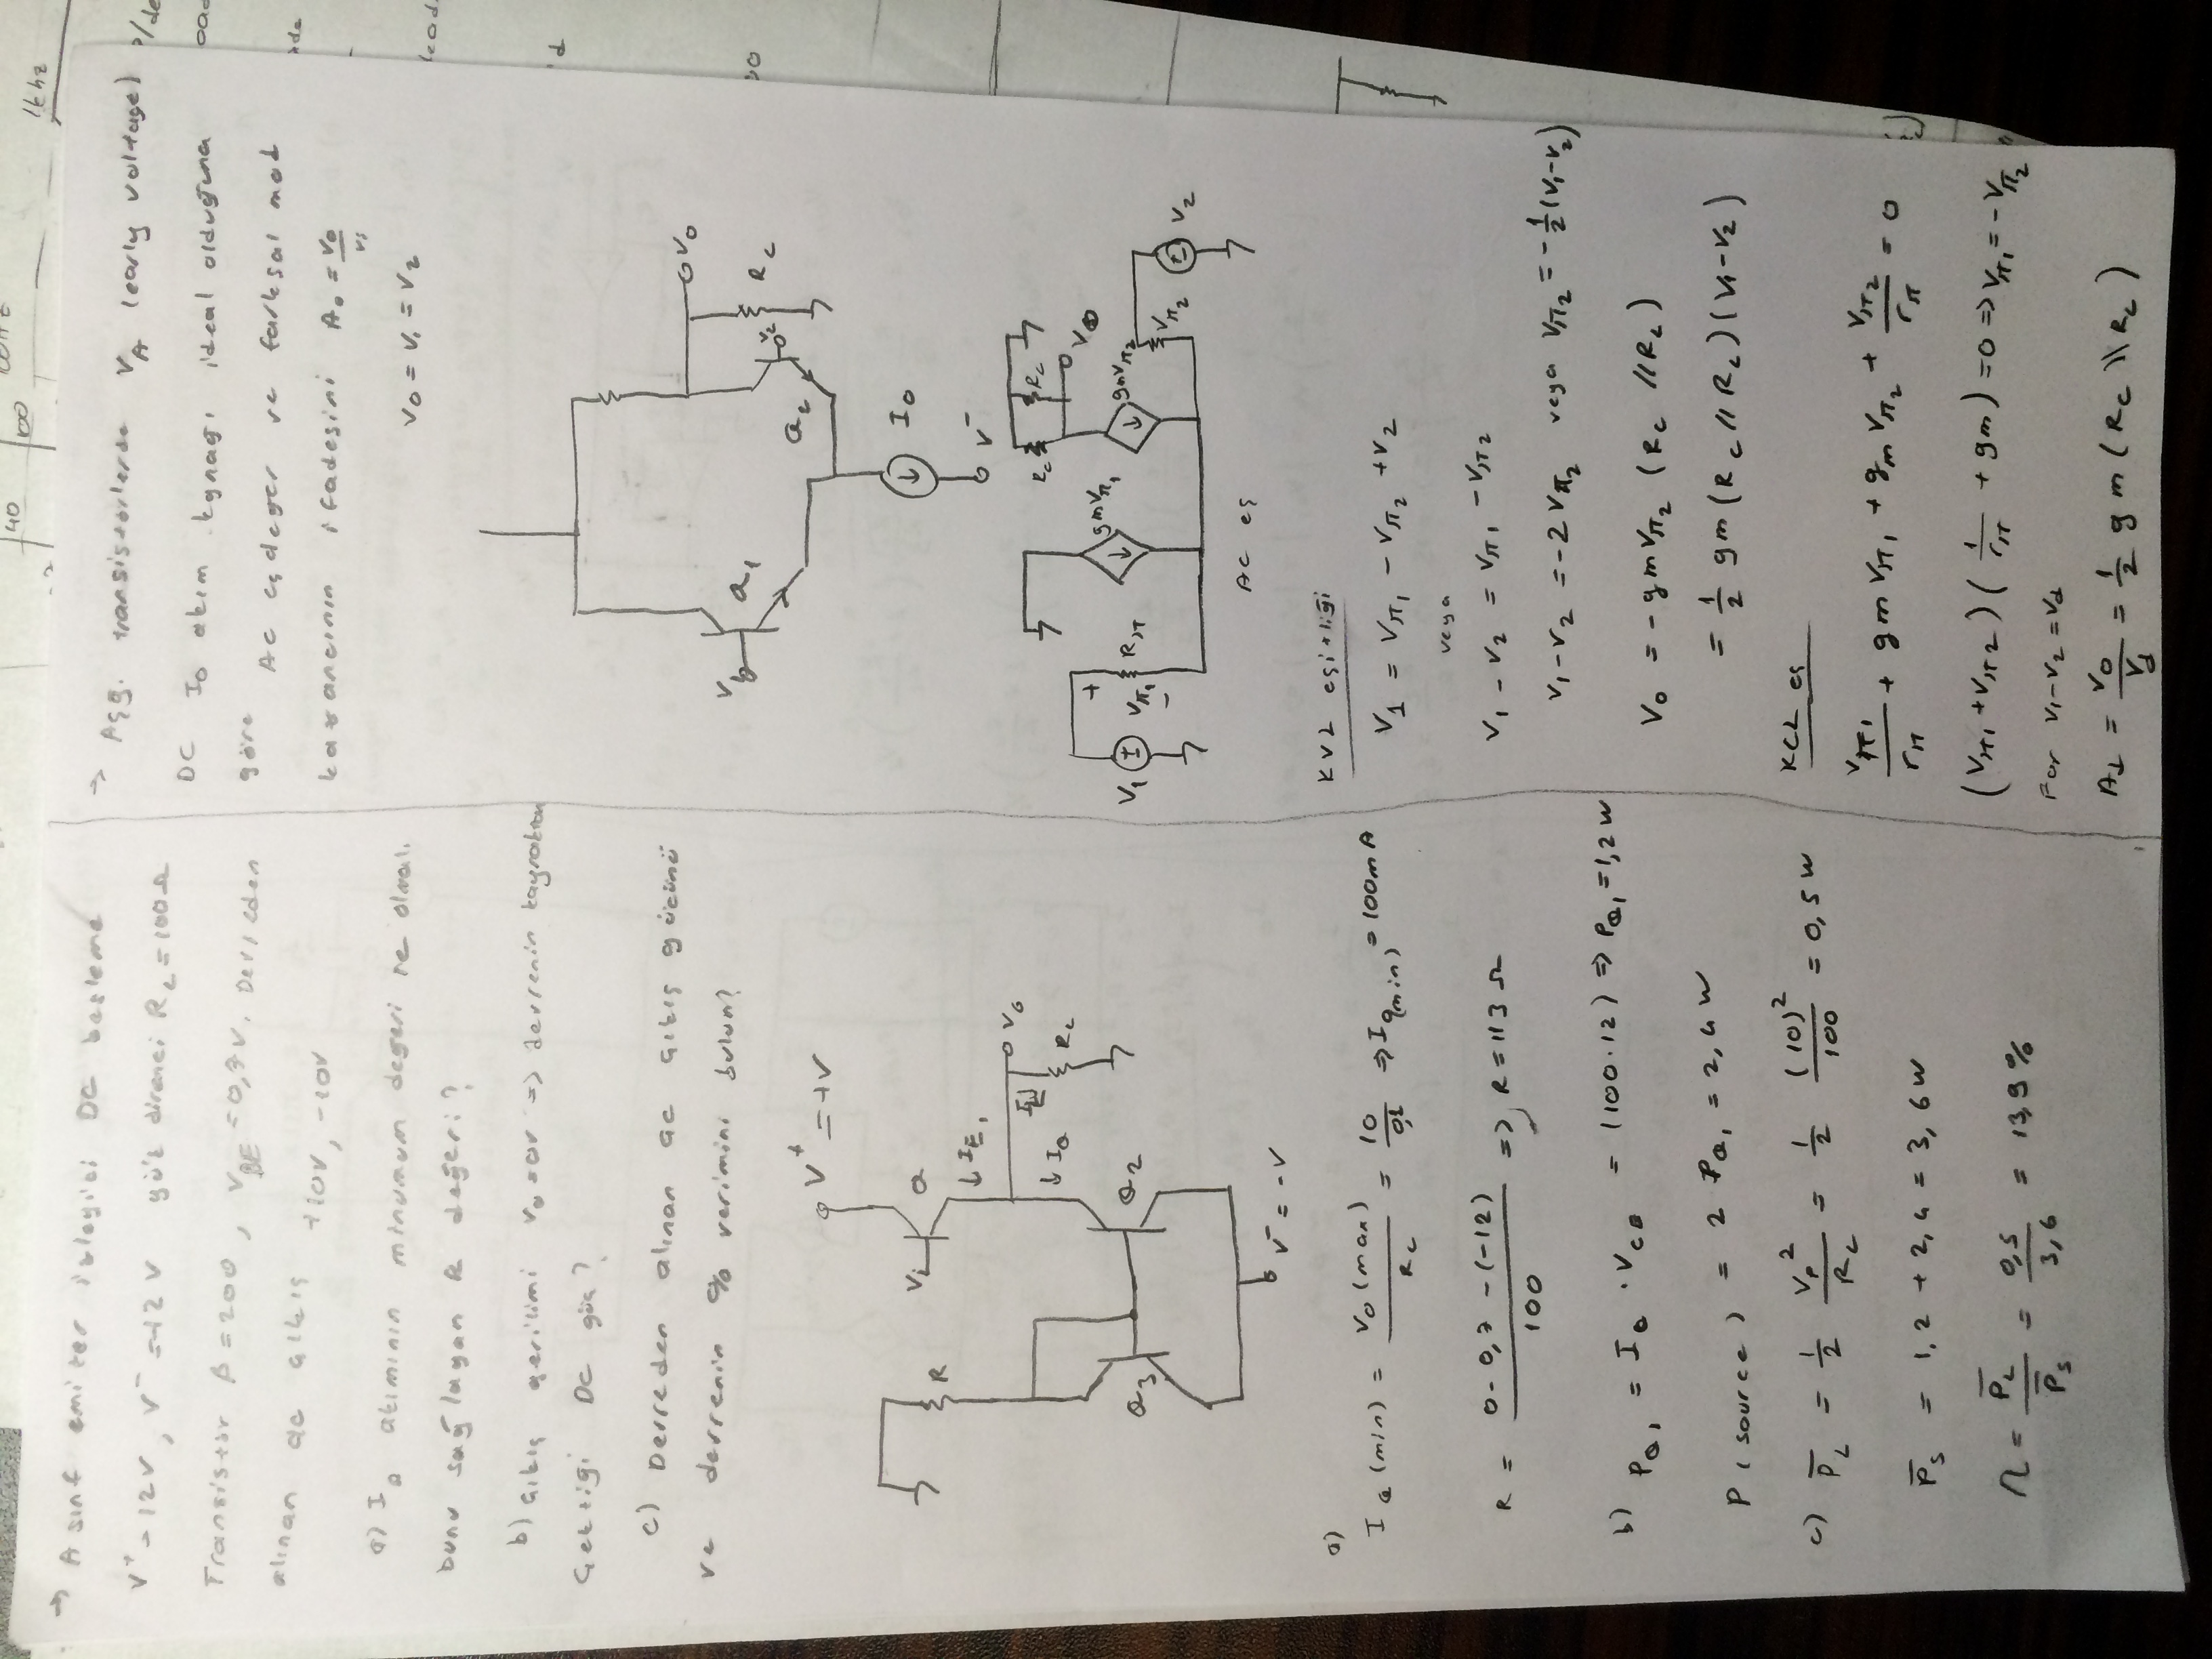 → A sınıf emiter izleyici DC besleme
V⁺=12V, V⁻=-12V yük direnci R_L=100Ω
Transistör β=200, V_BE=0,7V. Devreden
alınan ac çıkış +10V, -10V
a) I_Q akımının minumum değeri ne olmalı
bunu sağlayan R değeri?
b) çıkış gerilimi V_o=0V => devrenin kaynaktan
Çektiği DC güç?
c) Devreden alınan ac çıkış gücünü
ve devrenin % verimini bulun?
V⁺=+V
R
Vi
Q
↓ I_E1
V_o
↓ I_Q
R_L
Q3
Q2
V⁻=-V
a)
I_Q(min) = V_o(max)/R_L = 10/0,1 => I_Q(min) = 100mA
R = (0-0,7-(-12))/100 => R=113Ω
b) P_Q1 = I_Q . V_CE = (100.12) => P_Q1=1,2W
P(source) = 2 P_Q1 = 2,4W
c) P̅_L = 1/2 V_p²/R_L = 1/2 (10)²/100 = 0,5W
P̅_s = 1,2+2,4 = 3,6W
η = P̅_L/P̅_s = 0,5/3,6 = 13,9%
→ Aşğ. transistörlerde V_A (early voltage)
DC I_o akım kynağı ideal olduğuna
göre
AC eşdeğer ve farksal mod
kazancının ifadesini A_o = V_o/V_s
V_o = V_1 = V_2
V_o
V_b
Q1
Q2
V_2
R_L
I_o
V⁻
R_C
R_L
V_o
V_1
+
V_π1
-
R_π
gmV_π1
gmV_π2
V_π2
V_2
AC eş
KVL eşitliği
V_1 = V_π1 - V_π2 + V_2
veya
V_1 - V_2 = V_π1 - V_π2
V_1-V_2 = -2V_π2 veya V_π2 = -1/2(V_1-V_2)
V_o = -gmV_π2 (R_C//R_L)
= 1/2 gm(R_C//R_L)(V_1-V_2)
KCL eş
V_π1/r_π + gmV_π1 + gmV_π2 + V_π2/r_π = 0
(V_π1+V_π2)(1/r_π + gm)=0 => V_π1=-V_π2
For V_1-V_2=V_d
A_d = V_o/V_d = 1/2 gm(R_C\\R_L)
40
100
100Hz
1khz